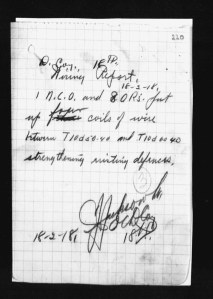 228
D. Coy., 18TH.
Wiring Report,
18-2-18,
1 N.C.O. and 8 O.Rs. put
up four coils of wire
between T10d50.40 and T10d00.40
strengthening existing defences.
18-2-18,
18th